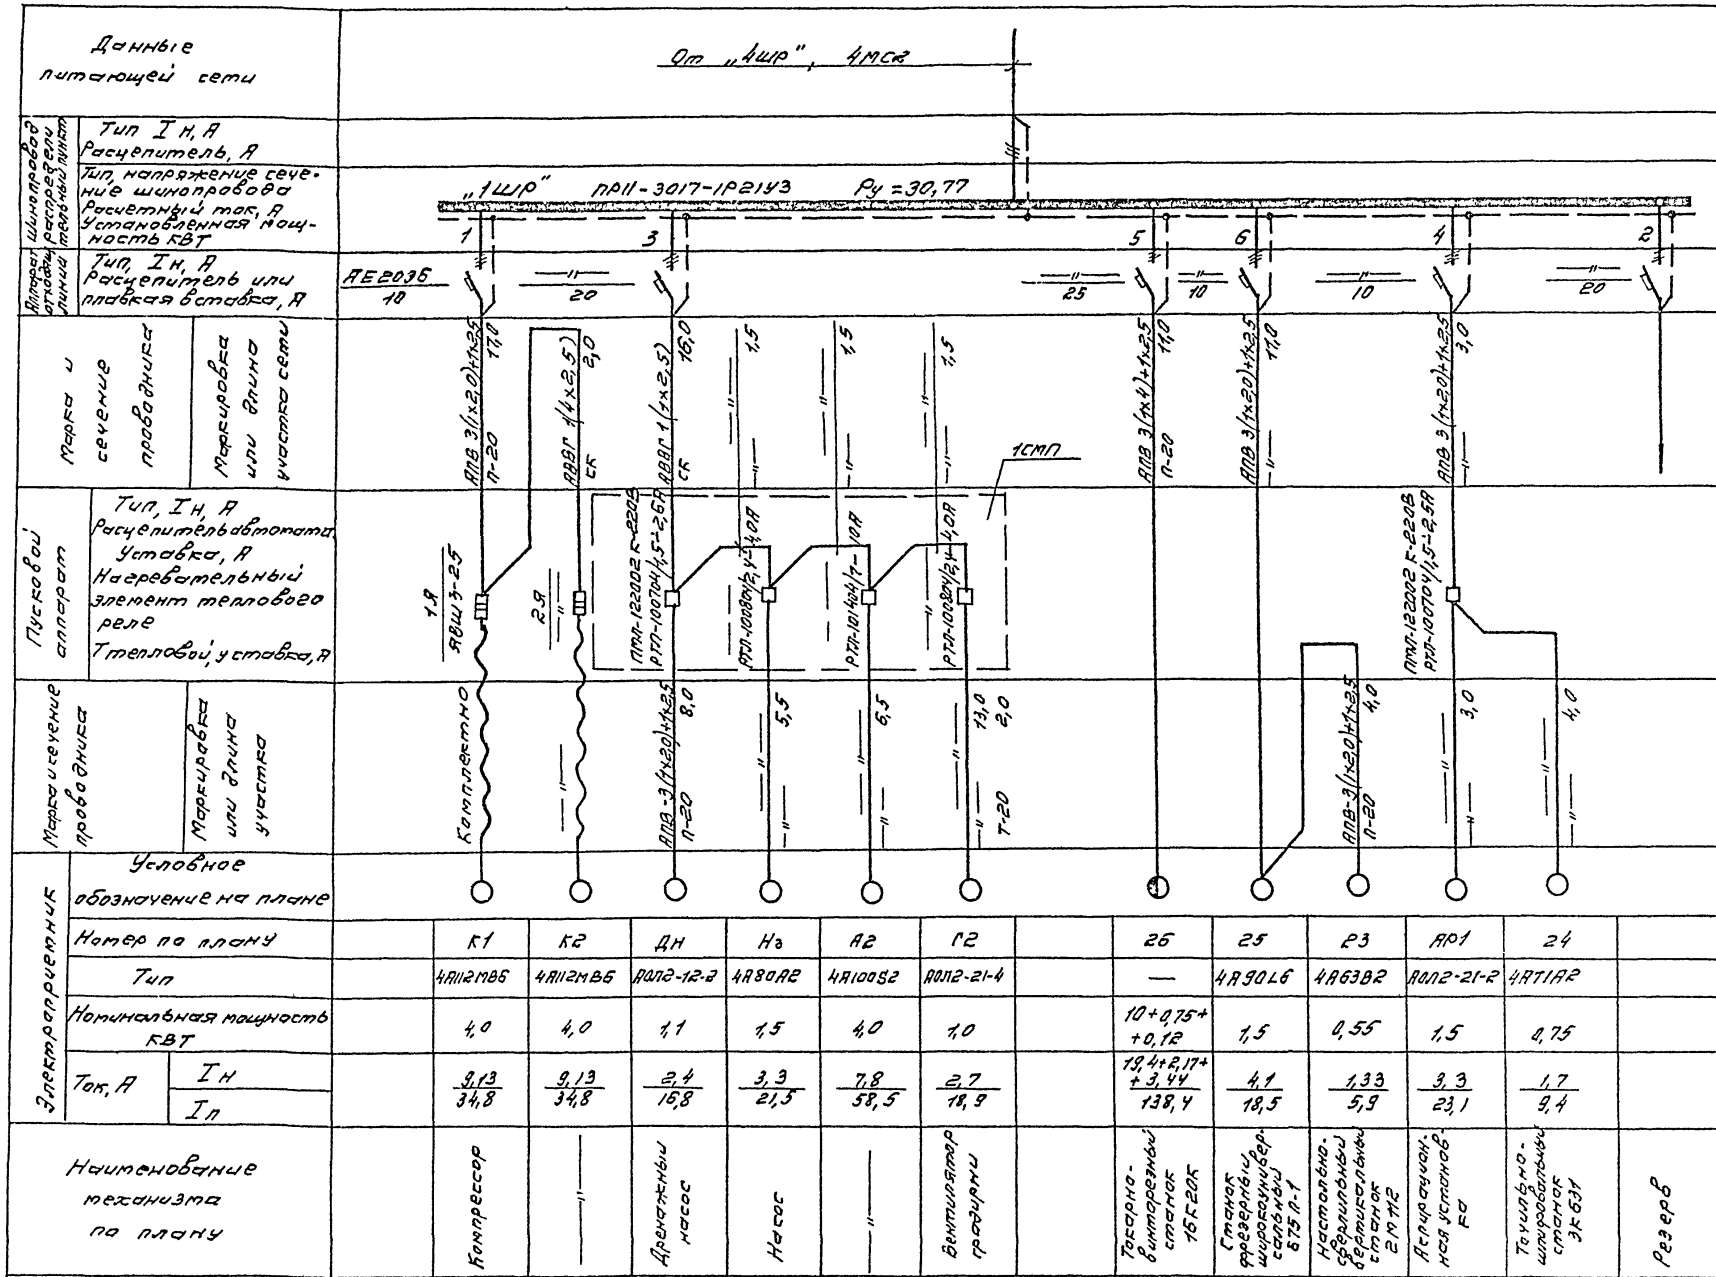 Данные
питающей сети
От „4шр", 4мсг
Шинопровод
распредели
тельный пункт
Тип Iн, А
Расцепитель, А
Тип, напряжение сече-
ние шинопровода
Расчетный ток, А
Установленная мощ-
ность кВт
„1ШР" ПР11-3017-1Р21У3 Ру=30,77
1 3 5 6 4 2
Аппарат
отходящ
линии
Тип, Iн, А
Расцепитель или
плавкая вставка, А
АЕ2036 —"— —"— —"— —"— —"—
18 20 25 10 10 20
Марка и
сечение
проводника
Маркировка
или длина
участка сети
АПВ 3(1×2,0)+1×2,5 17,0
П-20
АВВГ 1(4×2,5) 2,0
СК
АВВГ 1(1×2,5) 16,0
СК
—"— 1,5
—"—
—"— 1,5
—"—
—"— 1,5
—"—
АПВ 3(1×4)+1×2,5 11,0
П-20
АПВ 3(1×20)+1×2,5 17,0
—"—
АПВ 3(1×20)+1×2,5 3,0
—"—
1СМП
Пусковой
аппарат
Тип, Iн, А
Расцепитель автомата
Уставка, А
Нагревательный
элемент теплового
реле
Т тепловой, уставка, А
1Я
ЯВШ3-25
2Я
—"—
ПМЛ-122002 К-220В
РТЛ-100704/1,5-2,6А
РТЛ-100804/2,4-4,0А
—"—
РТЛ-101404/7-10А
—"—
РТЛ-100804/2,4-4,0А
—"—
ПМЛ-122002 К-220В
РТЛ-100704/1,5-2,6А
Марка и сечение
проводника
Маркировка
или длина
участка
Комплектно
—"—
АПВ-3(1×20)+1×2,5 8,0
П-20
—"— 5,5
—"—
—"— 6,5
—"—
—"— 13,0
—"— Т-20 2,0
АПВ-3(1×20)+1×2,5 4,0
П-20
—"— 3,0
—"—
—"— 4,0
—"—
Электроприемник
Условное
обозначение на плане
Номер по плану К1 К2 ДН Нз А2 Г2 26 25 23 АР1 24
Тип 4А112МВ6 4А112МВ6 АОЛ2-12-2 4А80А2 4А100S2 АОЛ2-21-4 — 4А90L6 4А63В2 АОЛ2-21-2 4А71А2
Номинальная мощность
кВт
4,0 4,0 1,1 1,5 4,0 1,0 10+0,75+
+0,12 1,5 0,55 1,5 0,75
Ток, А
Iн 9,13 9,13 2,4 3,3 7,8 2,7 19,4+2,17+
+3,44 4,1 1,33 3,3 1,7
Iп 34,8 34,8 15,8 21,5 58,5 18,9 138,4 18,5 5,9 23,1 9,4
Наименование
механизма
по плану
Компрессор
—"—
Дренажный
насос
Насос
—"—
Вентилятор
градирни
Токарно-
винторезный
станок
16К20К
Станок
фрезерный
широкоунивер-
сальный
675П-1
Настольно-
сверлильный
вертикальный
станок
2М112
Аспирацион-
ная установ-
ка
Точильно-
шлифовальный
станок
3К631
Резерв